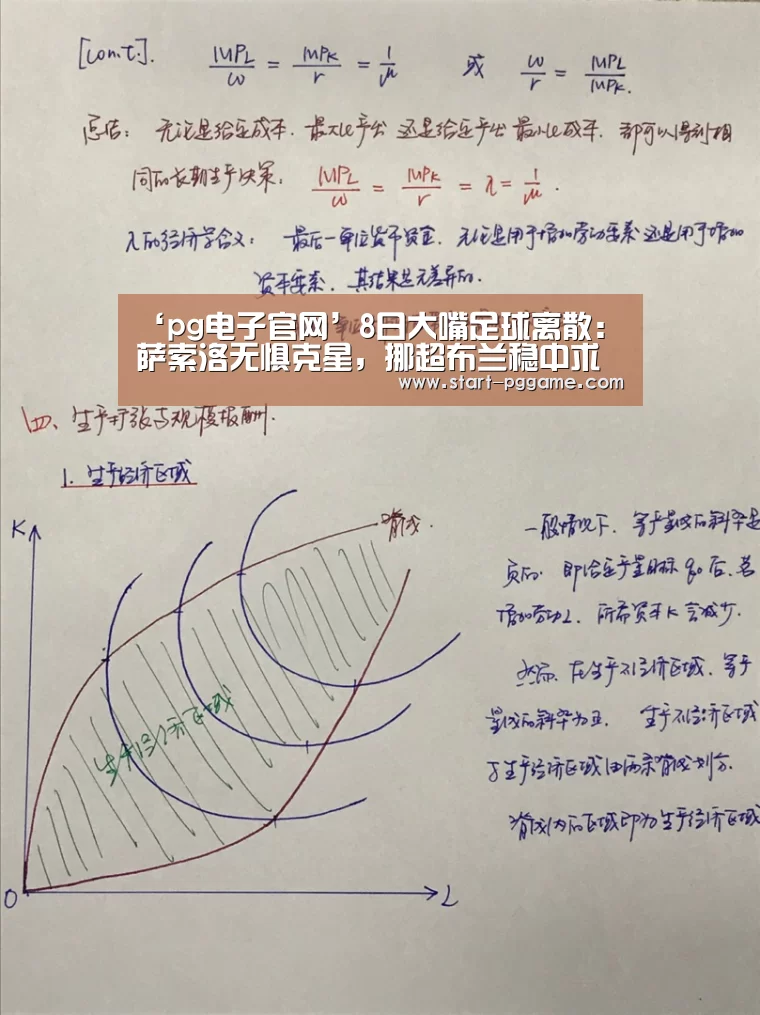 [Con.t.]. MPL/ω = MPK/r = 1/μ 或 ω/r = MPL/MPK.
总结: 无论是给定成本. 最大化产出 还是给定产出 最小化成本. 都可以得到相
同的长期生产决策: MPL/ω = MPK/r = λ = 1/μ.
λ的经济学含义: 最后一单位货币资金. 无论是用于增加劳动要素 还是用于增加
资本要素. 其结果是无差异的.
‘pg电子官网’8日大嘴足球离散：
萨索洛无惧克星，挪超布兰稳中求
www.start-pggame.com
四、生产扩张与规模报酬.
1. 生产经济区域
K
脊线.
生产经济区域
O
L
一般情况下. 等产量线的斜率是
负的. 即给定产量目标 q0 后. 若
增加劳动L. 所需资本K会减少.
然而. 在生产不经济区域. 等产
量线的斜率为正. 生产不经济区域
与生产经济区域由两条脊线划分.
脊线内的区域即为生产经济区域